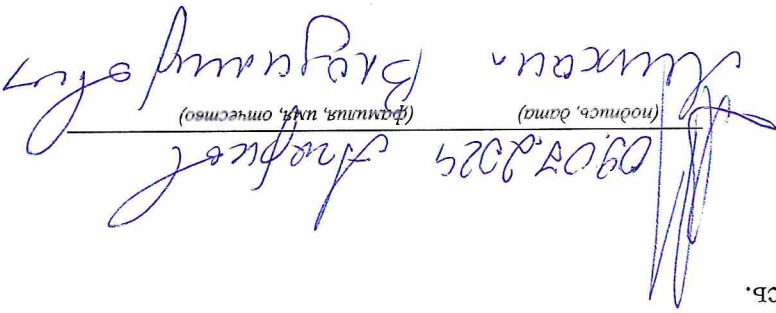 сь.
09.07.2024
(подпись, дата) (фамилия, имя, отчество)
Михаил Владимирович